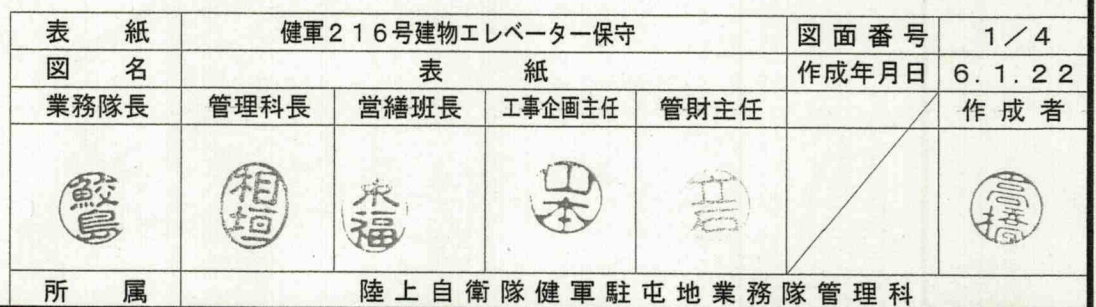 表紙 健軍216号建物エレベーター保守 図面番号 1/4
図名 表紙 作成年月日 6.1.22
業務隊長 管理科長 営繕班長 工事企画主任 管財主任 作成者
鮫島 相垣 末福 山本 立石 高橋
所属 陸上自衛隊健軍駐屯地業務隊管理科